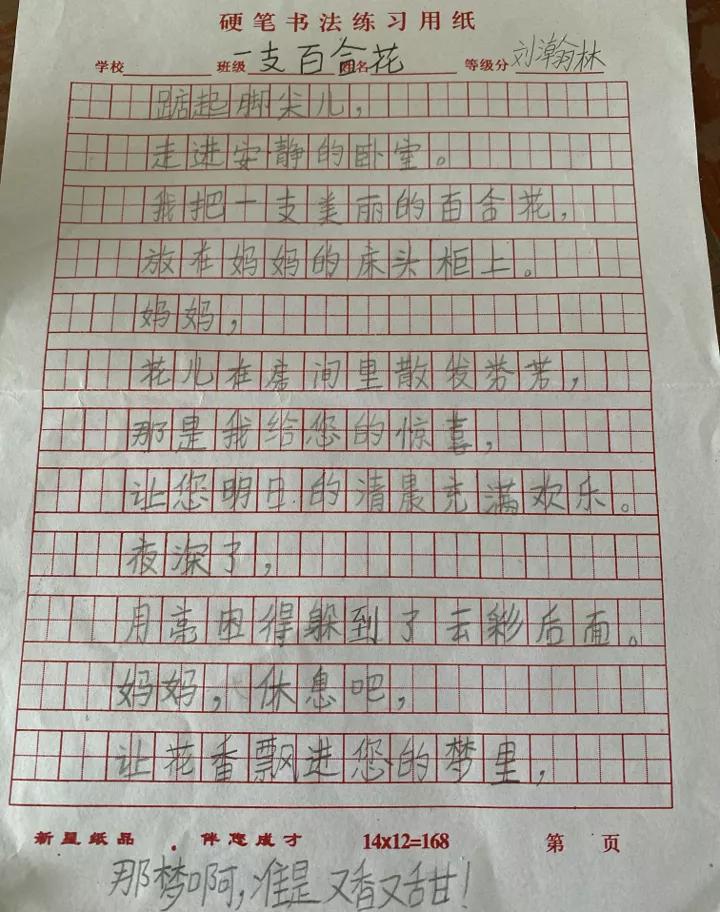 硬笔书法练习用纸
学校 班级 姓名 等级分
一支百合花 刘瀚林
踮起脚尖儿，
走进安静的卧室。
我把一支美丽的百合花，
放在妈妈的床头柜上。
妈妈，
花儿在房间里散发芳芳，
那是我给您的惊喜，
让您明日的清晨充满欢乐。
夜深了，
月亮困得躲到了云彩后面。
妈妈，休息吧，
让花香飘进您的梦里，
新星纸品 . 伴您成才 14x12=168 第 页
那梦啊，准是又香又甜！